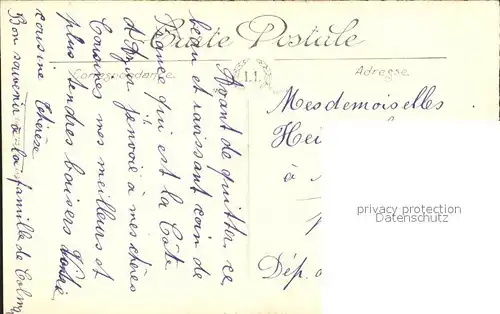 Carte Postale
Correspondance
LL
Adresse
Avant de quitter ce
beau et ravissant coin de
France qui est la Côte
d'Azur j'envoie à mes chères
Cousines mes meilleurs et
plus tendres baisers Votre
cousine Thérèse
Bon souvenir à la famille de Colmar
Mesdemoiselles
Hei
à
Dép.
privacy protection
Datenschutz